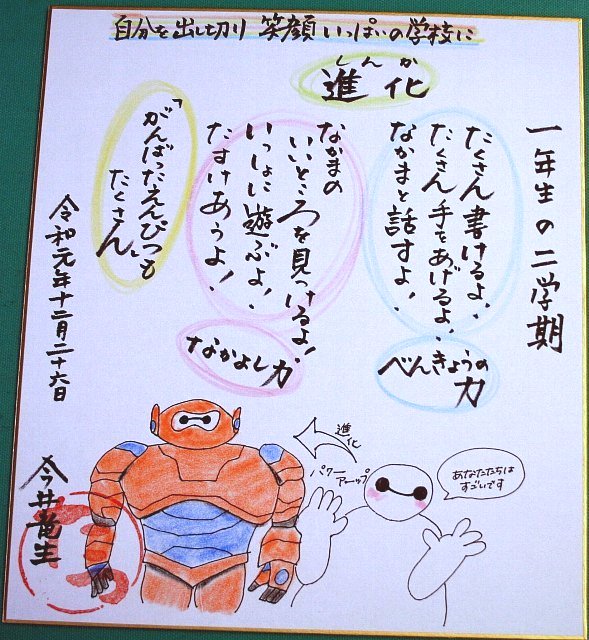 自分を出し切り 笑顔いっぱいの学校に
しんか
進化
一年生の二学期
たくさん書けるよ、
たくさん手をあげるよ、
なかまと話すよ、
べんきょうの
力
なかまの
いいところを見つけるよ!
いっしょに遊ぶよ、
たすけあうよ!
なかよし力
「がんばったえんぴつ」も
たくさん
令和元年十二月二十六日
今井竜生
進化
パワー
アップ
あなたたちは
すごいです